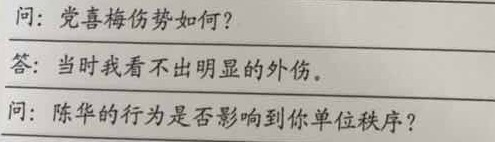 问：党喜梅伤势如何？
答：当时我看不出明显的外伤。
问：陈华的行为是否影响到你单位秩序？